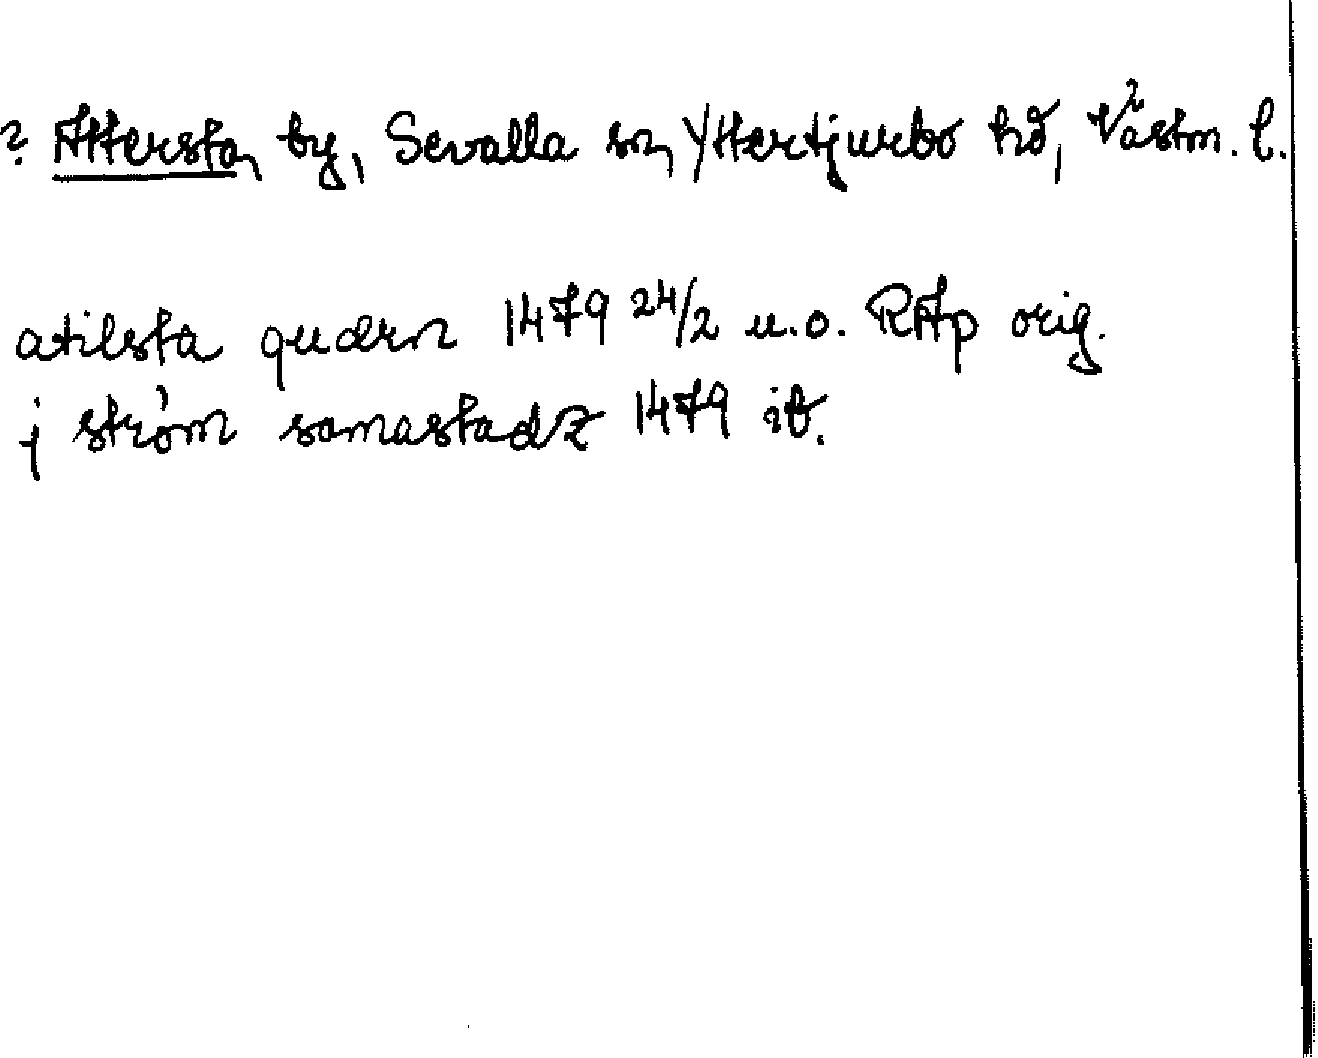 ? Attersta, by, Sevalla sn, Yttertjurbo hd, Västm. l.
atilsta quærn 1479 24/2 u.o. RAp orig.
j strøm samastadz 1479 ib.